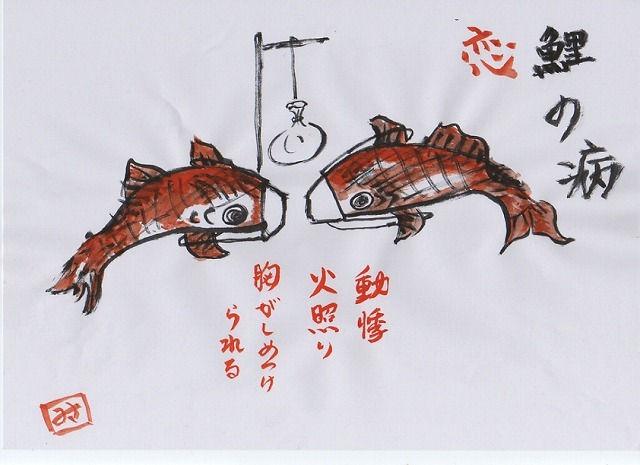 鯉の病
恋
動悸
火照り
胸がしめつけ
られる
みさ